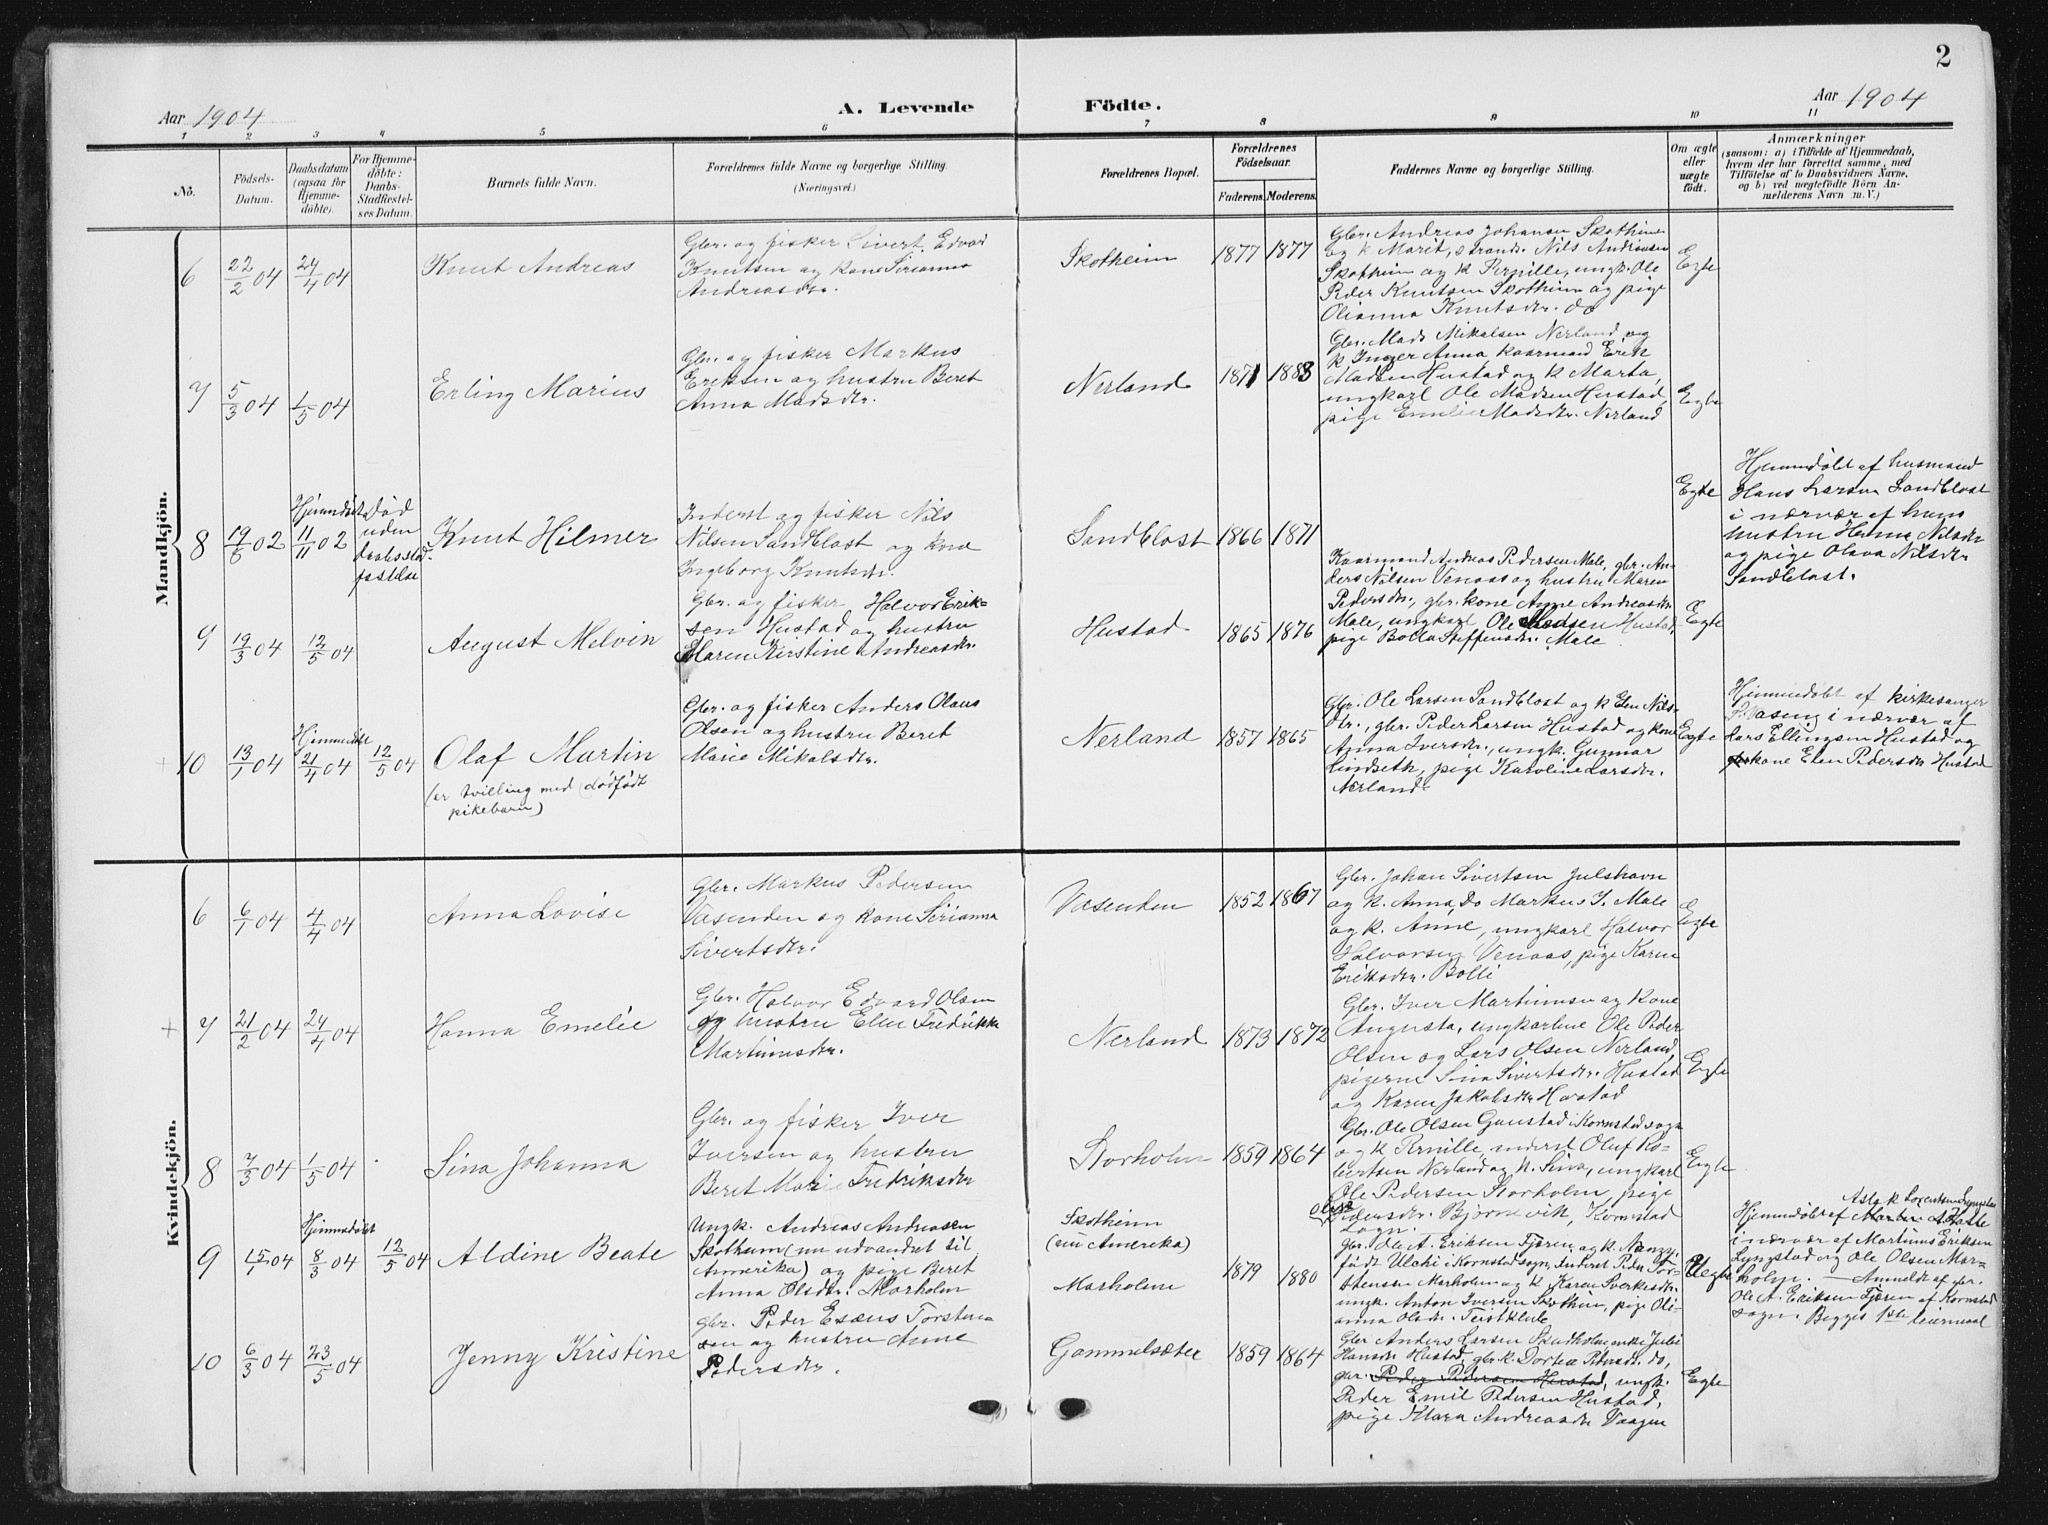 2
Aar 1904
A. Levende Födte.
Aar 1904
1 2 3 4 5 6 7 8 9 10 11
Nö.
Födsels-Datum.
Daabsdatum (ogsaa for Hjemme-döbte).
For Hjemme-döbte: Daabs-Stadfæstel-ses Datum.
Barnets fulde Navn.
Forældrenes fulde Navne og borgerlige Stilling.
(Næringsvei.)
Forældrenes Bopæl.
Forældrenes Födselsaar.
Faderens. Moderens.
Faddernes Navne og borgerlige Stilling.
Om ægte eller uægte födt.
Anmærkninger
(saasom: a) i Tilfælde af Hjemmedaab,
hvem der har forrettet samme, med
Tilföielse af to Daabsvidners Navne,
og b) ved uægtefödte Börn An-
melderens Navn m. V.)
Mandkjön.
6
22/2 04
24/4 04
Knut Andreas
Gbr. og fisker Sivert Edvard
Knutsen og kone Sirianna
Andreasdtr.
Skotheim
1877 1877
Gbr. Andreas Johansen Skotheim
og k Marit, strands. Nils Andreasen
Skotheim og k Pernille, ungk. Ole
Peder Knutsen Skotheim og pige
Olianna Knutsdtr. do
Egte
7
5/3 04
1/5 04
Erling Marius
Gbr. og fisker Markus
Eriksen og hustru Beret
Anna Madsdtr.
Nerland
1871 1883
Gbr. Mads Mikalsen Nerland og
k Inger Anna, kaarmand Erik
Madsen Hustad og k Marta,
ungkarl Ole Madsen Hustad,
pige Emelie Madsdtr. Nerland
Egte
8
19/6 02
Hjemmedöbt
11/11 02
Död
uden
daabsstad-
festelse
Knut Hilmer
Inderst og fisker Nils
Nilsen Sandblost og kone
Ingeborg Knutsdtr.
Sandblost
1866 1871
Egte
Hjemmedöbt af husmand
Hans Larsen Sandblost
i nærvær af hans
hustru Hanna Nilsdtr
og pige Olava Nilsdtr
Sandblost.
9
19/3 04
12/5 04
August Melvin
Gbr. og fisker Halvor Erik-
sen Hustad og hustru
Maren Kirstine Andreasdtr.
Hustad
1865 1876
Kaarmand Andreas Pedersen Male, gbr. An-
ders Nilsen Venaas og hustru Maren
Pedersdtr., gbr. kone Anne Andreasdtr
Male, ungkarl Ole Madsen Hustad,
pige Bolla Steffensdtr. Male
Egte
+ 10
13/1 04
Hjemmedöbt
21/4 04
12/5 04
Olaf Martin
(er tvilling med dödfödt
pikebarn)
Gbr. og fisker Anders Olaus
Olsen og hustru Beret
Marie Mikalsdtr.
Nerland
1857 1865
Gbr. Ole Larsen Sandblost og k Elen Nils-
dtr., gbr. Peder Larsen Hustad og kone
Anna Iversdtr., ungk. Gunnar
Lindseth, pige Karoline Larsdtr.
Nerland
Egte
Hjemmedöbt af kirkesanger
P. Vaseng i nærvær af
Lars Ellingsen Hustad og
kone Elen Pedersdtr Hustad
Kvindekjön.
6
6/1 04
4/4 04
Anna Lovise
Gbr. Markus Pedersen
Vasenden og kone Sirianna
Sivertsdtr.
Vasenden
1852 1867
Gbr. Johan Sivertsen Julshavn
og k. Anna, Do Markus J. Male
og k. Anne, ungkarl Halvor
Halvorsen Venaas, pige Karen
Eriksdtr. Bolli
Egte
+ 7
21/2 04
24/4 04
Hanna Emelie
Gbr. Halvor Edvard Olsen
og hustru Ellen Fredrikke
Martinusdtr.
Nerland
1873 1872
Gbr. Iver Martinusen og kone
Augusta, ungkarlene Ole Peder
Olsen og Lars Olsen Nerland,
pigerne Sina Sivertsdtr. Hustad
og Karen Jakobsdtr Hustad
Egte
8
7/3 04
1/5 04
Sina Johanna
Gbr. og fisker Iver
Iversen og hustru
Beret Marie Fredriksdtr
Storholm
1859 1864
Gbr. Ole Olsen Gunstad i Kornstad sogn
og k Pernille, inderst Oluf Ro-
bertsen Nerland og k. Sina, ungkarl
Ole Pedersen Storholm, pige
Pedersdtr. Bjørnevik, Kornstad
sogn.
Egte
9
15/1 04
Hjemmedöbt
8/3 04
12/5 04
Aldine Beate
Ungk. Andreas Andreasen
Skotheim (nu udvandret til
Amerika) og pige Beret
Anna Olsdtr. Morholm
Skotheim
(nu Amerika)
Morholm
1879 1880
Gbr. Ole A. Eriksen Tjøren og k. Nanzy,
født Ulchi i Kornstad sogn, Inderst Peder Tor-
stensen Morholm og k Karen Sverkesdtr.
ungk. Anton Iversen Skotheim, pige Oli-
anna Olsdtr. Teistklub
Uegte
Aslak Lorentsen Lyngstad
Hjemmedöbt af
i nærvær af Martinus Eriksen
Lyngstad og Ole Olsen Mor-
holm. — Anmeldt af gbr.
Ole A. Eriksen Tjøren af Kornstad
sogn. Begges 1ste leiermaal
10
6/3 04
23/5 04
Jenny Kristine
Gbr. Peder Esæus Torsten-
sen og hustru Anne
Pedersdtr.
Gammelsæter
1859 1864
Gbr Anders Larsen Skarholm enke Julie
Hansdtr Hustad, gbr. k. Dortea Pedersdtr. do,
gbr. Peder Pedersen Hustad, ungk.
Peder Emil Pedersen Hustad,
pige Klara Andreasdtr Vaagen
Egte